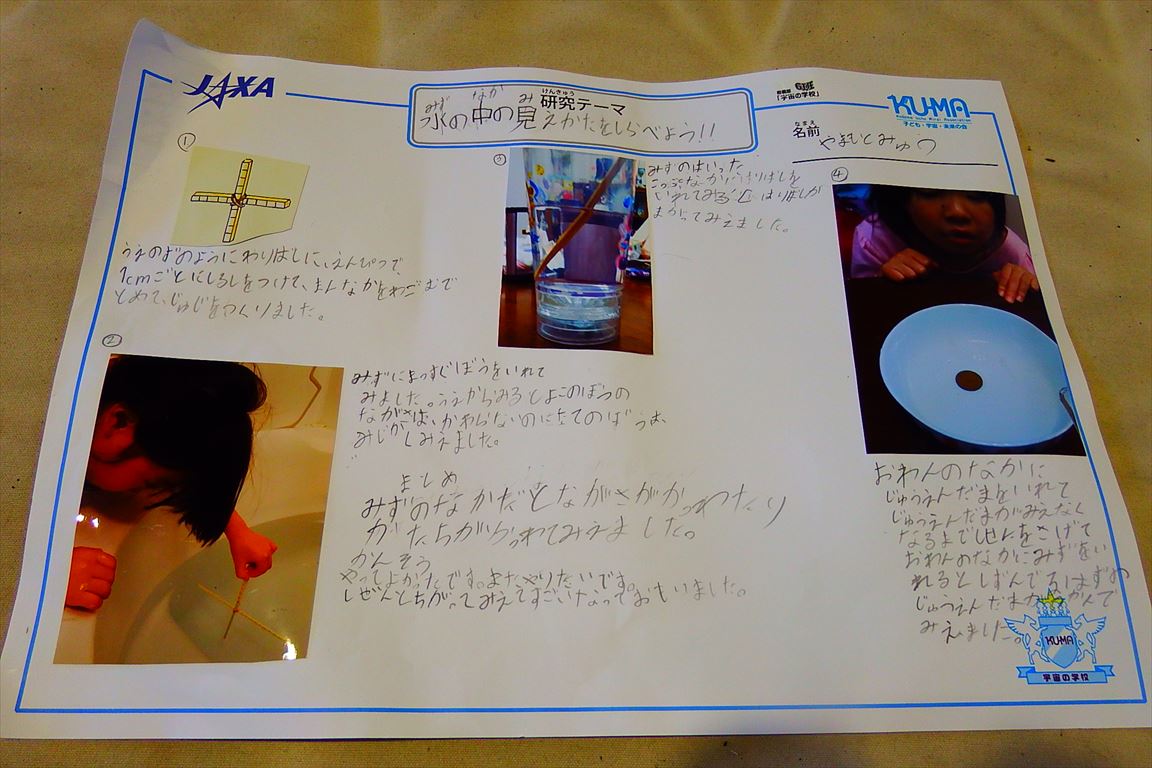 JAXA
けんきゅう
研究テーマ
みず なか み
水の中の見えかたをしらべよう!!
「宇宙の学校」
KU-MA
子ども・宇宙・未来の会
なまえ
名前
①
うえのずのようにわりばしに、えんぴつで
1cmごとにしるしをつけて、まんなかをわごむで
とめて、じゅじをつくりました。
②
みずにまっすぐぼうをいれて
みました。うえからみるとよこのぼうの
ながさは、かわらないのにたてのぼうは、
みじかくみえました。
③
みずのはいった
こっぷなかにわりばしを
いれてみるとわりばしが
まがってみえました。
④
おわんのなかに
じゅうえんだまをいれて
じゅうえんだまがみえなく
なるまでしせんをさげて
おわんのなかにみずをい
れるとしずんでるはずの
じゅうえんだまが かんで
みえました。
まとめ
みずのなかだとながさがかわったり
かたちがかわってみえました。
かんそう
やってよかったです。またやりたいです。
しぜんとちがってみえてすごいなっておもいました。
KU-MA
宇宙の学校